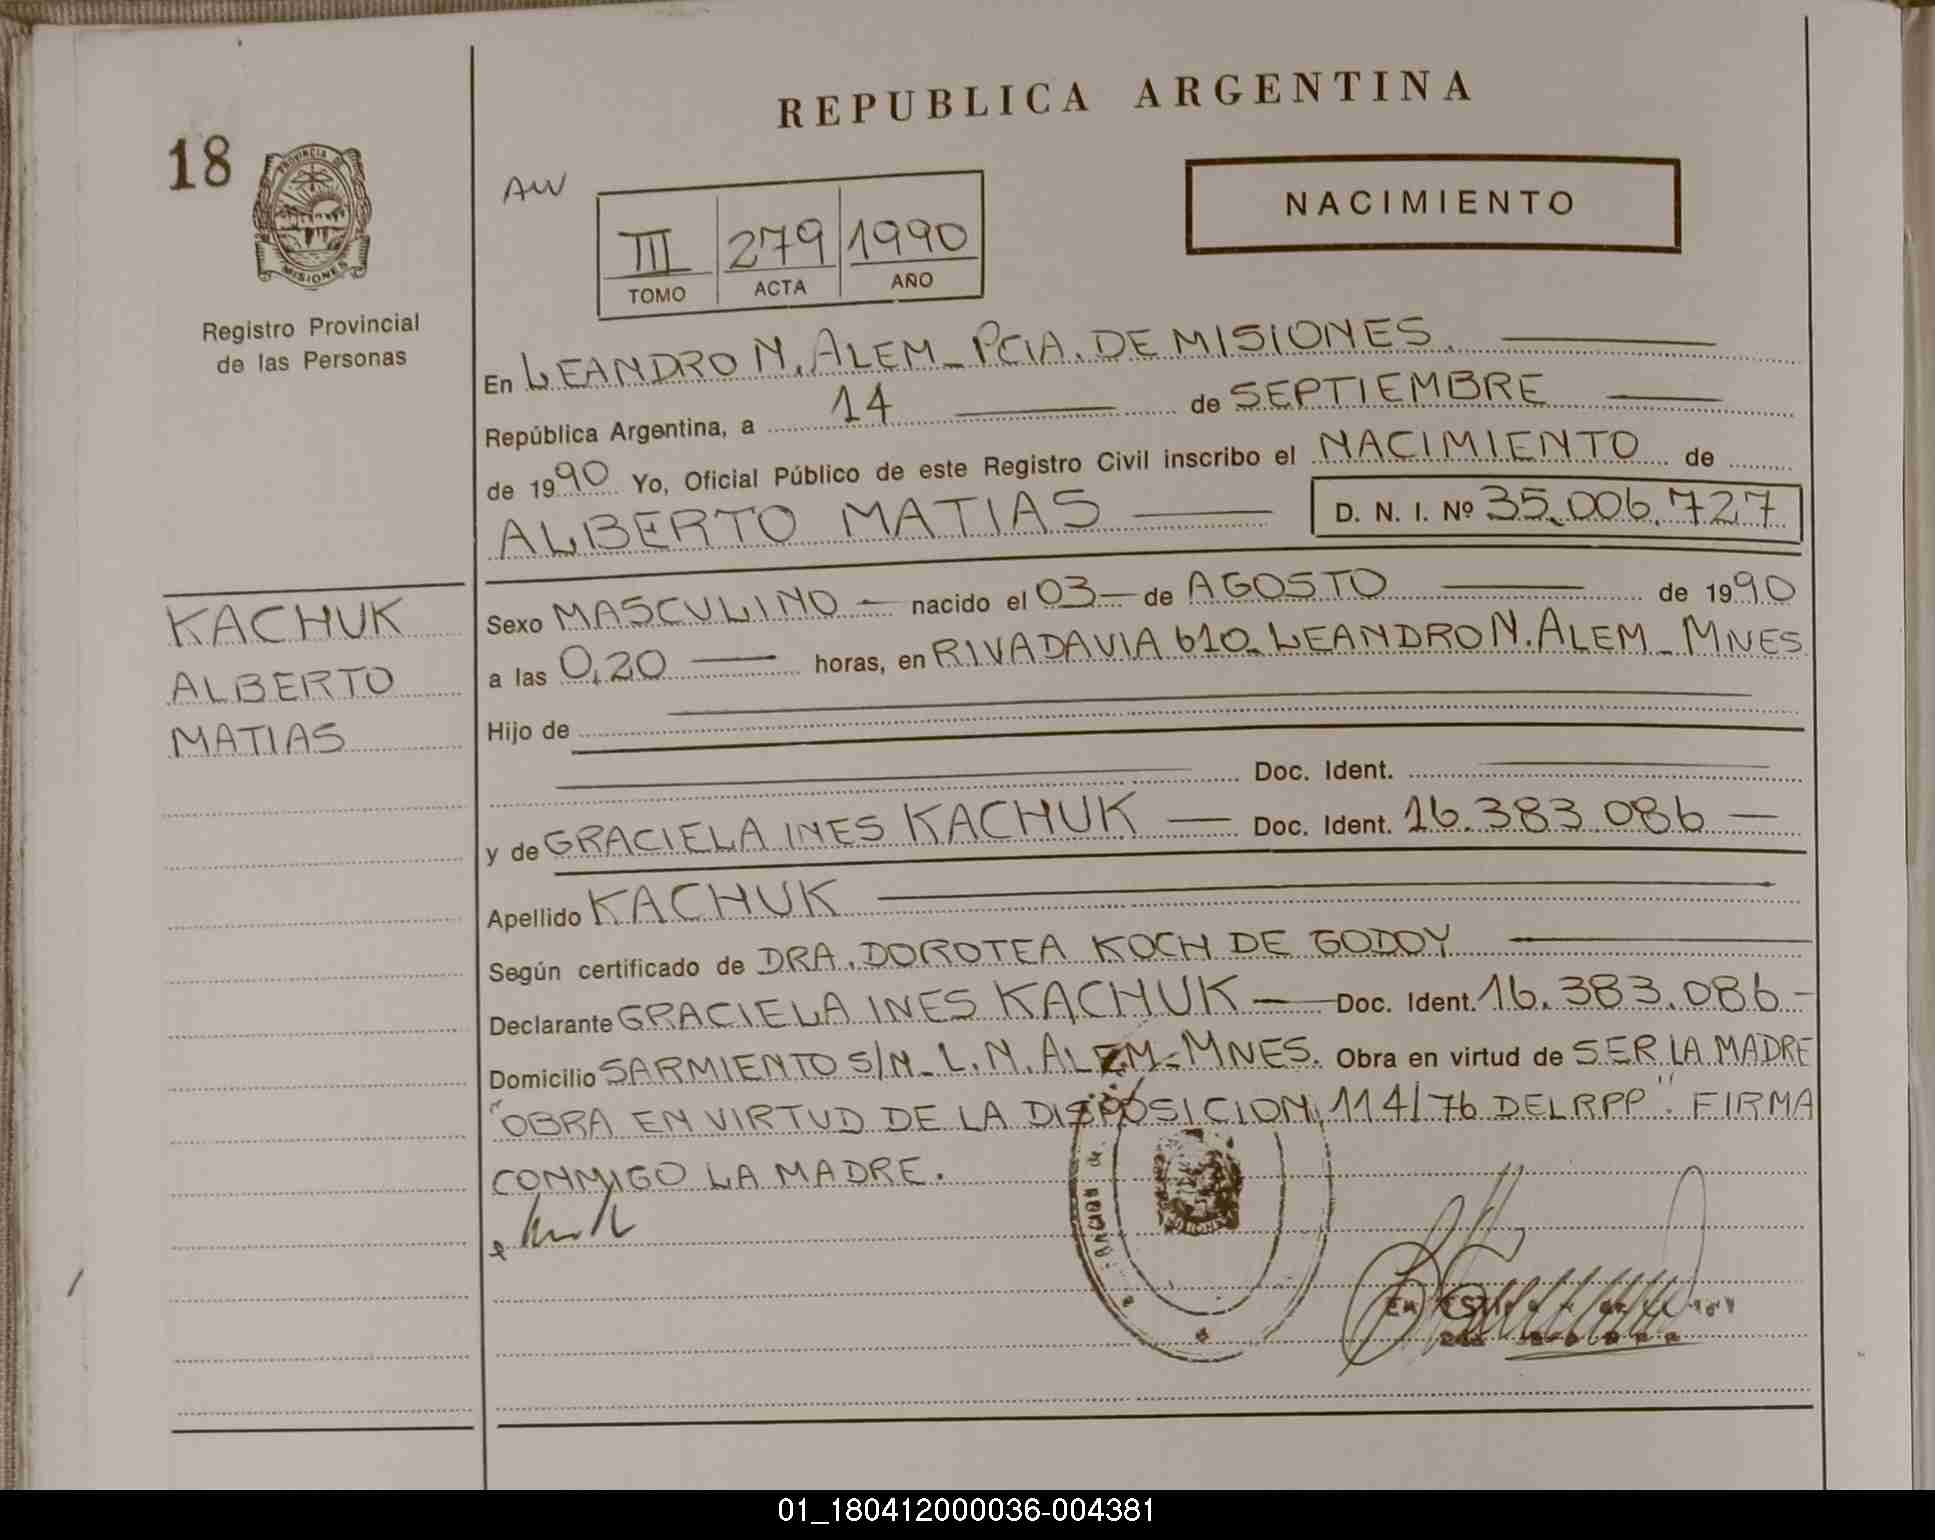 REPUBLICA ARGENTINA
18
PROVINCIA DE
MISIONES
Registro Provincial
de las Personas
AW
III 279 1990
TOMO ACTA AÑO
NACIMIENTO
En LEANDRO N. ALEM_PCIA. DE MISIONES.
República Argentina, a 14 de SEPTIEMBRE
de 1990 Yo, Oficial Público de este Registro Civil inscribo el NACIMIENTO de
ALBERTO MATIAS D. N. I. Nº 35.006.727
KACHUK
ALBERTO
MATIAS
Sexo MASCULINO nacido el 03 de AGOSTO de 1990
a las 0,20 horas, en RIVADAVIA 610_LEANDRO N. ALEM_MNES
Hijo de
Doc. Ident.
y de GRACIELA INES KACHUK Doc. Ident. 16.383.086
Apellido KACHUK
Según certificado de DRA. DOROTEA KOCH DE GODOY
Declarante GRACIELA INES KACHUK Doc. Ident. 16.383.086-
Domicilio SARMIENTO S/N_L.N. ALEM_MNES. Obra en virtud de SER LA MADRE
"OBRA EN VIRTUD DE LA DISPOSICION 114/76 DEL RPP". FIRMA
CONMIGO LA MADRE.
01_180412000036-004381